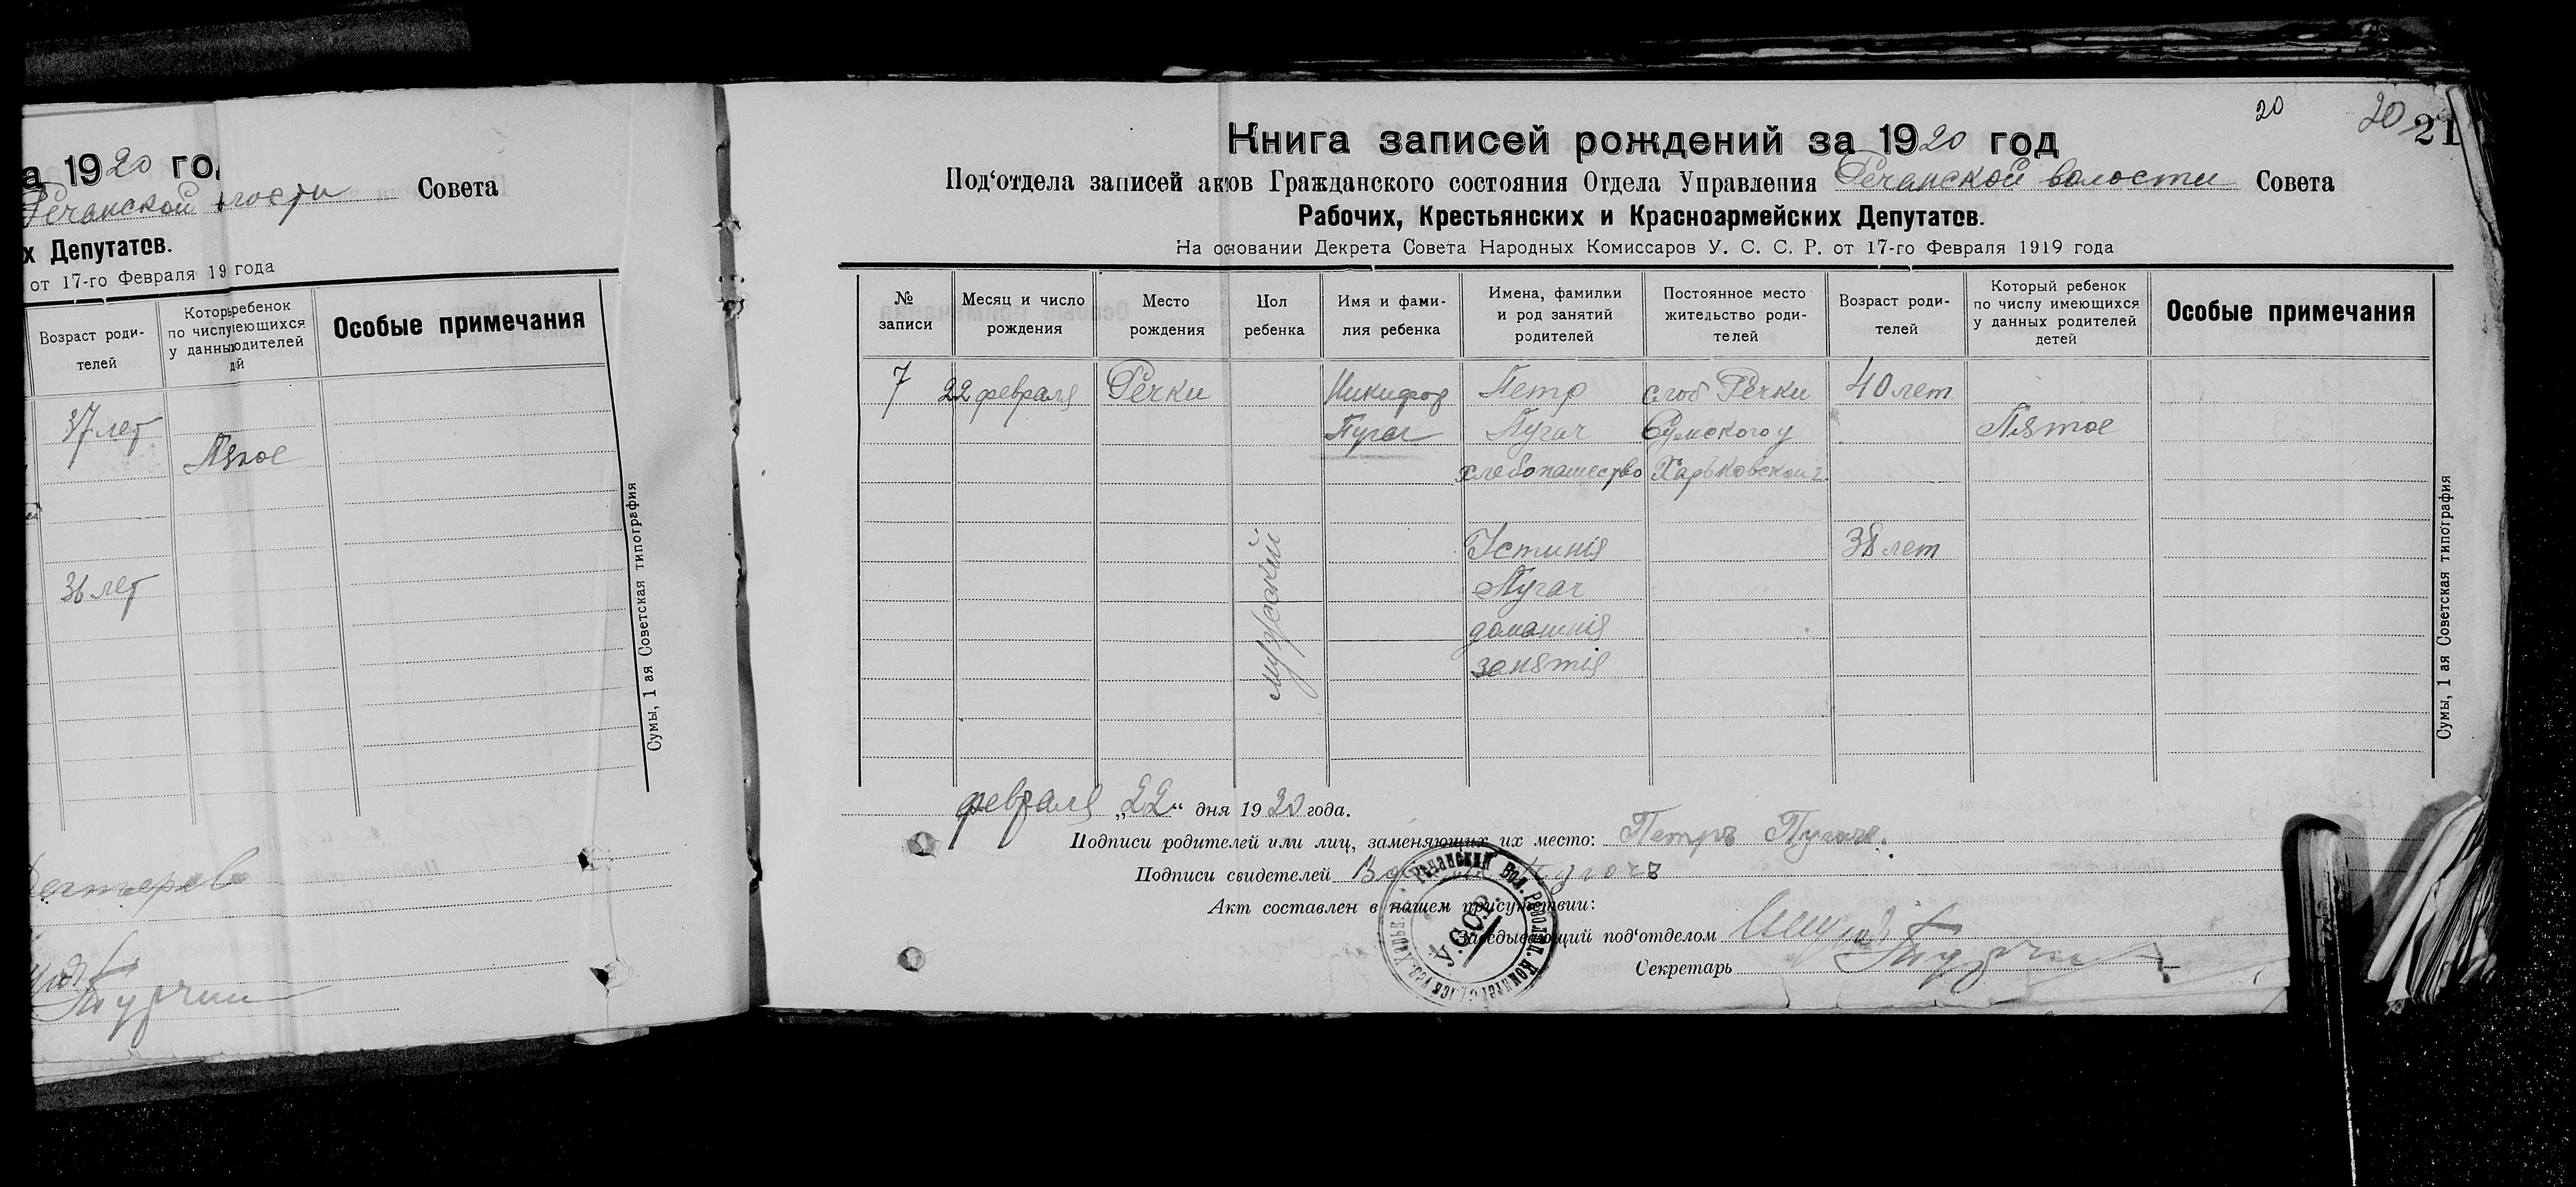 а 1920 го
Речанской
Совета
х Депутатов.
от 17-го Февраля 19 года
Возраст роди-
телей
Которы ребенок
по числу еющихся
у данны одителей
Особые примечания
37 лет
36 лет
Сумы, 1 ая Советская типография
20
20
21
Книга записей рождений за 1920 год
Под'отдела записей актов Гражданского состояния Отдела Управления Речанской волости Совета
Рабочих, Крестьянских и Красноармейских Депутатов.
На основании Декрета Совета Народных Комиссаров У. С. С. Р. от 17-го Февраля 1919 года
№
записи
Месяц и число
рождения
Место
рождения
Пол
ребенка
Имя и фами-
лия ребенка
Имена, фамилии
и род занятий
родителей
Постоянное место
жительство роди-
телей
Возраст роди-
телей
Который ребенок
по числу имеющихся
у данных родителей
детей
Особые примечания
7
22 февраля
Речки
мужский
Никифор
Пугач
Петр
Пугач
хлебопашество
Устинія
Пугач
домашнія
занятія
слоб Речки
Сумского у
Харьковской г.
40 лет
38 лет
Пятое
Сумы, 1 ая Советская типография
февраля „22“ дня 1920 года.
Подписи родителей или лиц, заменяющих их место: Петръ Пугачъ.
Подписи свидетелей
Акт составлен в нашем присутствии:
Заведывающий под'отделом
Секретарь
Речанский Вол. Революц. Комитет
У.ССР.